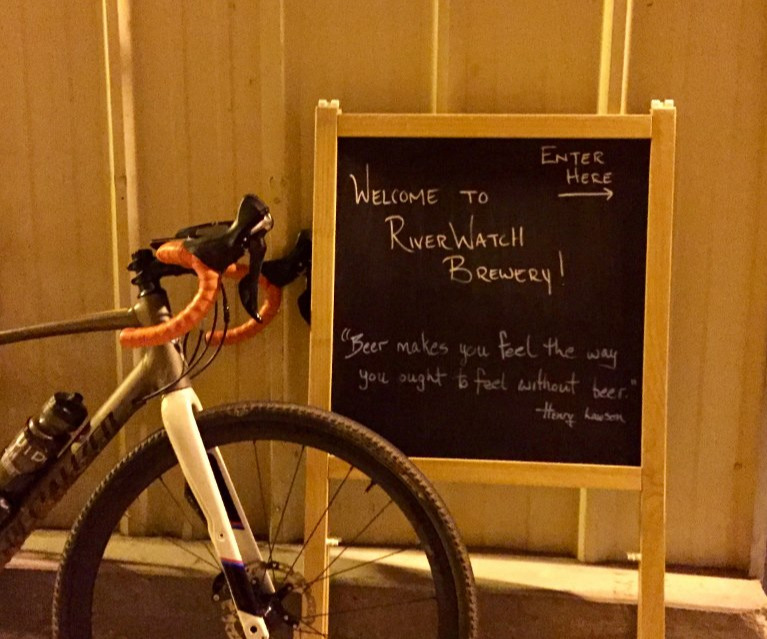 ENTER
HERE
WELCOME TO
RIVERWATCH
BREWERY!
"Beer makes you feel the way
you ought to feel without beer."
-Henry Lawson
SPECIALIZED